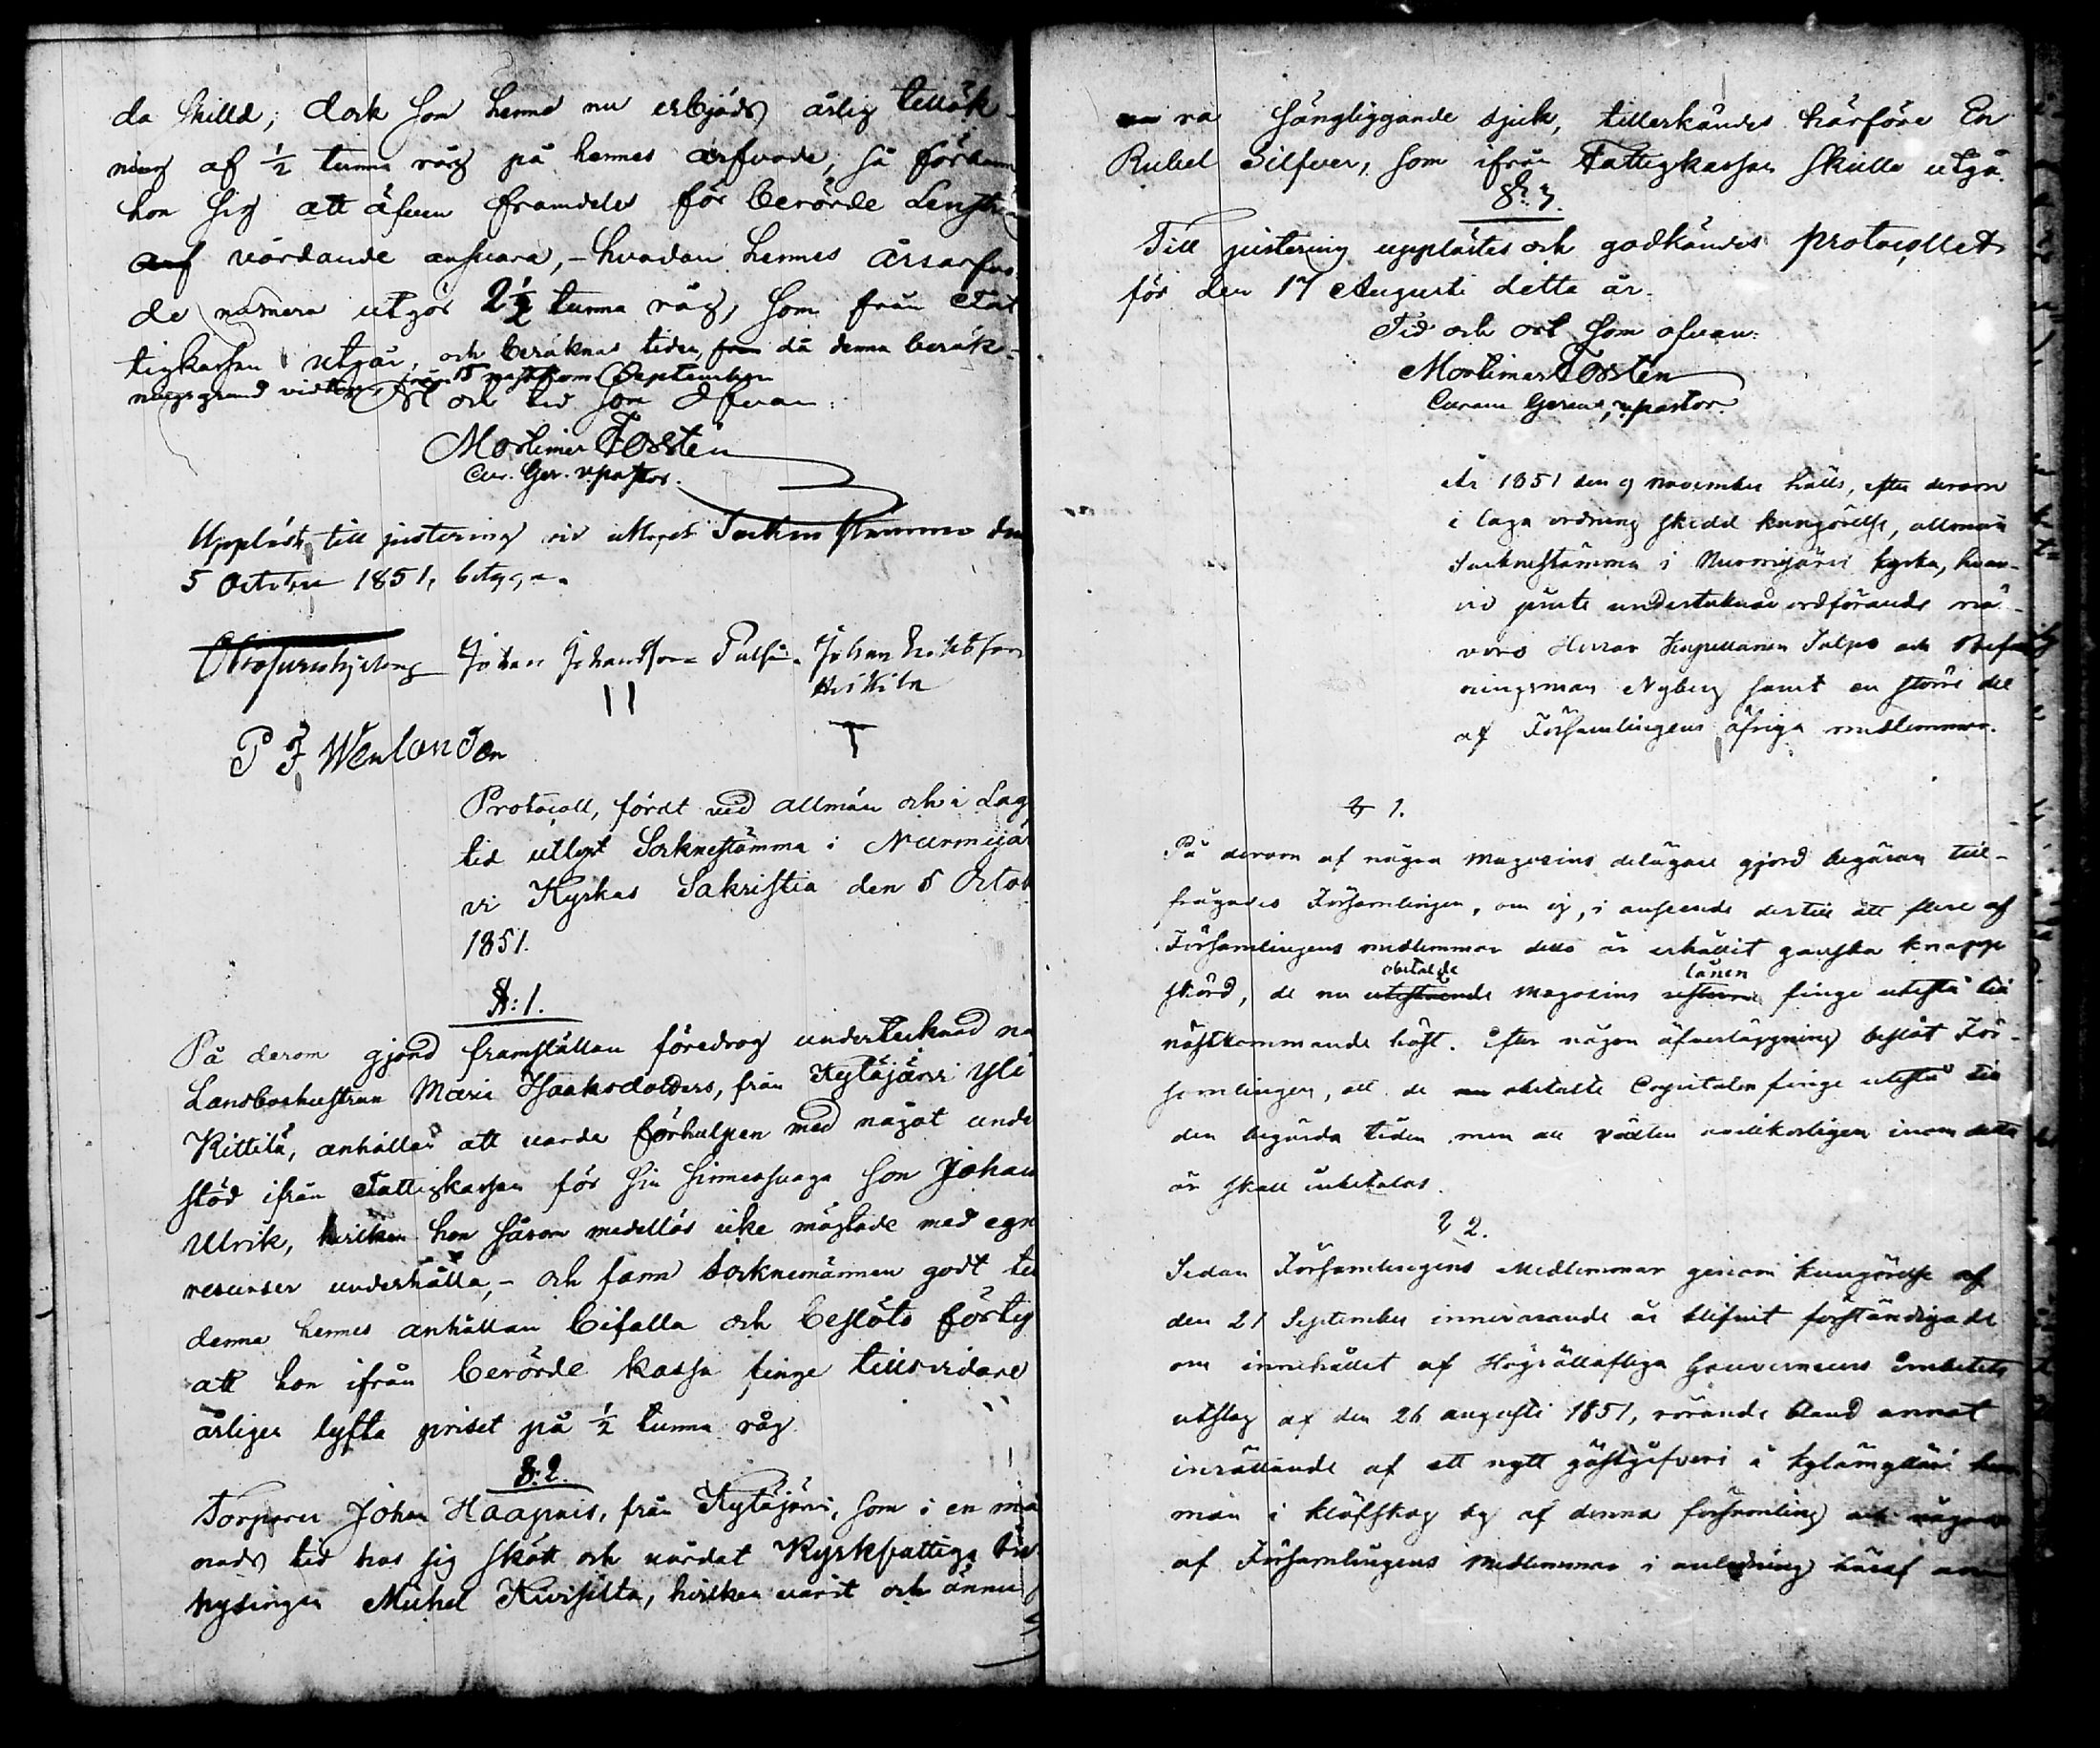 da skilld; dock som henne nu erbjöds årlig tillök-
ning af ½ tunna råg på hennes arfvode, så förband
hon sig att äfven framdeles för berörde
vårdande ansvara, - hvadan hennes årsarfvo-
de numera utgör 2½ tunna råg, som från Fat
tigkassan utgår, och beräknas tiden, från då denna beräk-
ningsgrund vidtog, från September
Ort och tid som ofvan:
Mortimer Forstén
Cur. Ger. v.pastor.
Uppläst till justering vid utlyst Sockne stämma den
5 October 1851, betyga.
Johan Johansson Johan
P F Wenlander
Protocoll, fördt vid allmän och i Lag
tid utlyst Socknestämma i Nurmijär
vi Kyrkas Sakristia den 5 Octob
1851.
§: 1.
På derom gjord framställan föredrog undertecknad
Landboehustrun Maria Isaksdotters, från Kytäjärvi Yli
Kittilä, anhållan att varda förhulpen med något unde
stöd ifrån Fattigkassan för sin sinnessvaga son Johan
Ulrik, hvilken hon såsom medellös icke mägtade med egn
resurser underhålla, - och fann Socknemännen godt
denna hennes anhållan bifalla och beslöts förty
att hon ifrån berörde kassa finge tillsvidare
årligen lyfta priset på ½ tunna råg.
§: 2.
Torparen Johan Haapnis, från Kytäjärvi, som i en må
nads tid hos sig skött och vårdat Kyrkfattige
hysingen Michel Kivisilta, hvilken varit och ännu
ra sängliggande sjuk, tillerkändes härföre En
Rubel Silfver, som ifrån Fattigkassan skulle utgå.
§: 3.
Till justering upplästes och godkändes protocollet
för den 17 Augusti detta år.
Tid och ort som ofvan:
Mortimer Forstén
Curam Gerens, v.pastor.
År 1851 den 9 November hölls, efter derom
i laga ordning skedd kungörelse, allmän
Socknestämma i Nurmijärvi kyrka, hvar-
vid jemte undertecknad ordförande när-
voro Herrar Kapellanen Talpo och Befall
ningsman Nyberg samt en större del
af Församlingens öfriga medlemmar.
§ 1.
På derom af några Magasins delägare gjord begäran till-
frågades Församlingen, om ej, i anseende dertill att flere af
Församlingens medlemmar detta år erhållit ganska knapp
obetalde lånen
skörd, de nu utestående Magasins finge utestå till
nästkommande höst. Efter någon öfverläggning beslöt För-
samlingen, att de obetalte Capitalen finge utestå till
den begärda tiden men att räntan ovilkorligen inom detta
år skall inbetalas.
§ 2.
Sedan Församlingens Medlemmar genom kungörelse af
den 21 September innevarande år blifvit förständigade
om innehållet af Högvällofliga Gouverneurs Embetets
utslag af den 26 augusti 1851, rörande bland annat
inrättande af ett nytt gästgifveri å
man i Klöfskog by af denna församling och någre
af Församlingens Medlemmar i anledning häraf